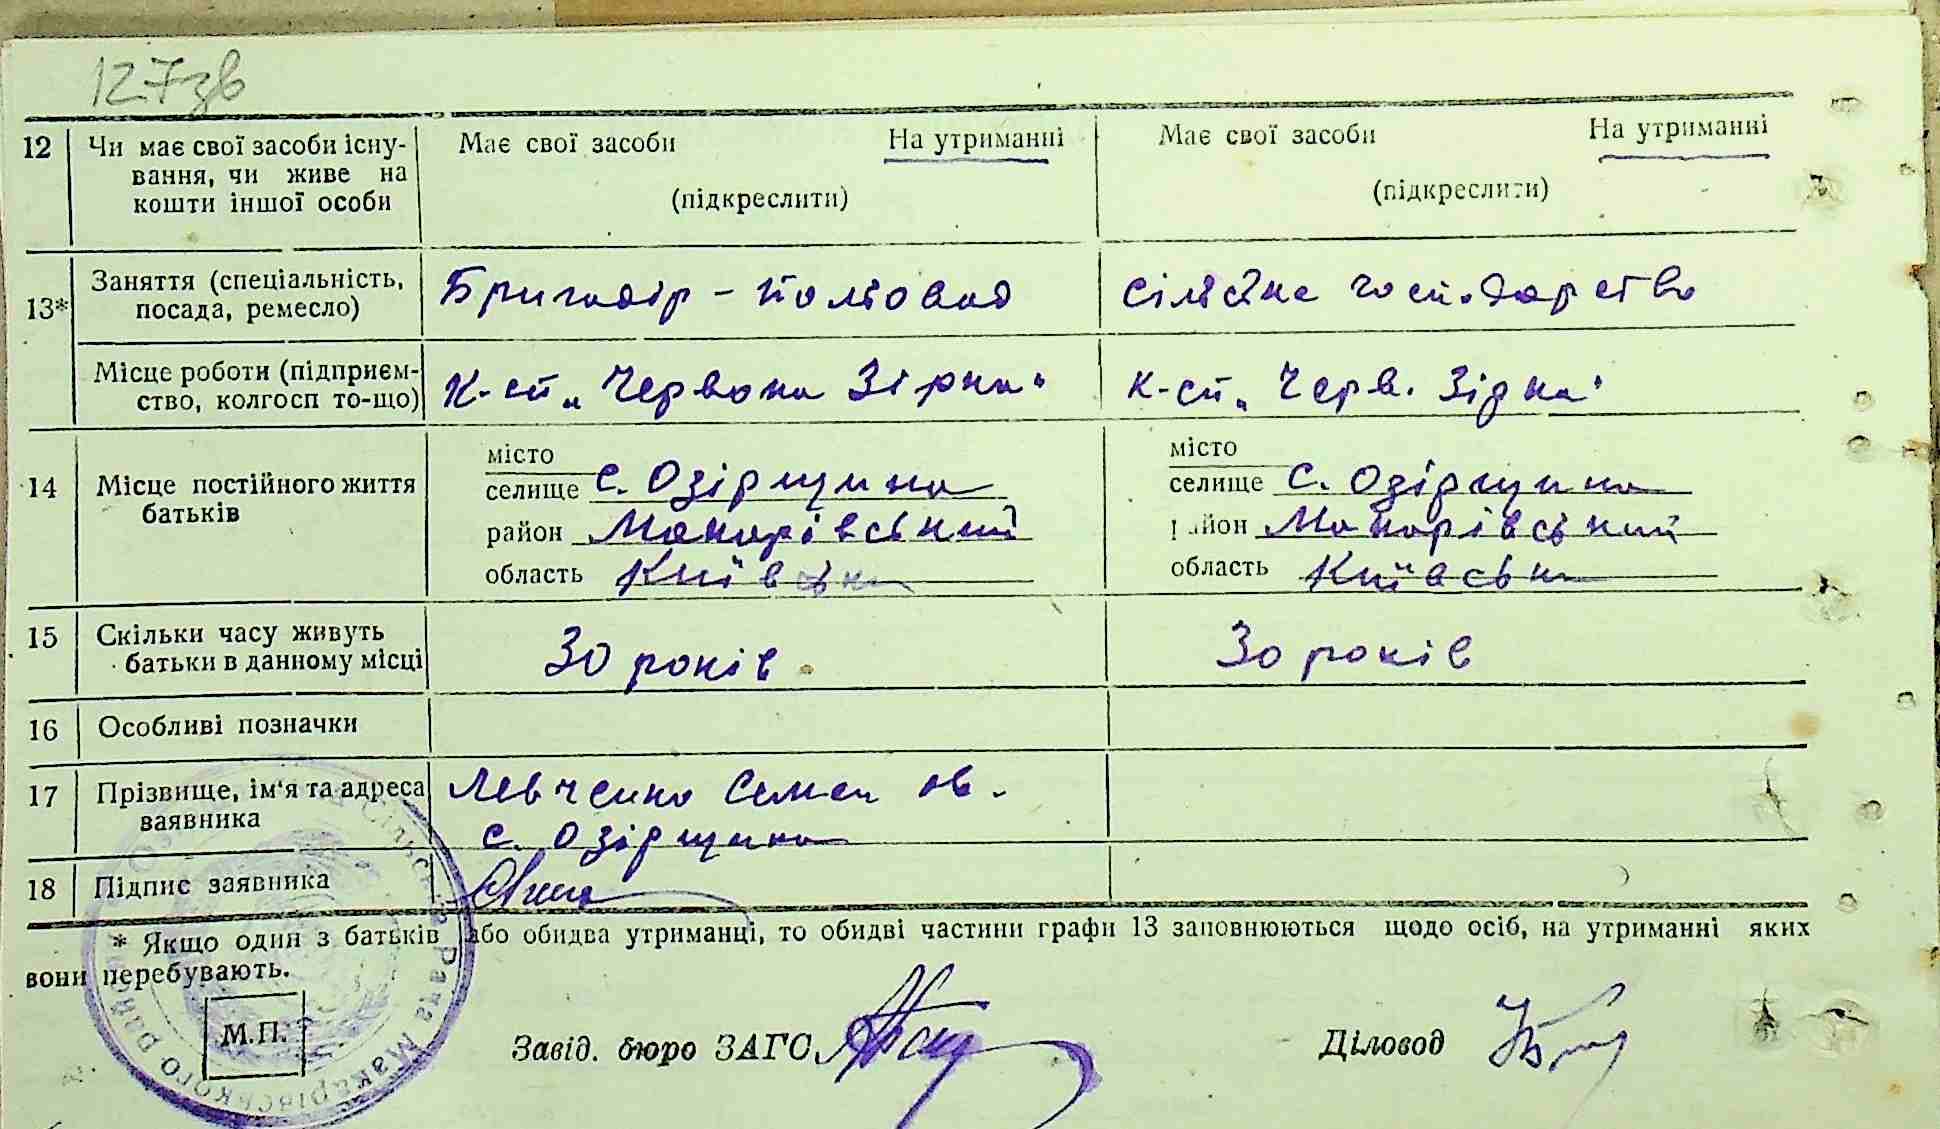 127зв
12 Чи має свої засоби існу- Має свої засоби На утриманні Має свої засоби На утриманні
вання, чи живе на
кошти іншої особи (підкреслити) (підкреслити)
13* Заняття (спеціальність, Бригадір - польовод сільське господарство
посада, ремесло)
Місце роботи (підприєм- К-сп „Червона Зірка“ К-сп „Черв. Зірка“
ство, колгосп то-що)
14 Місце постійного життя місто місто
батьків селище с. Озірщина селище с. Озірщина
район Макарівський район Макарівський
область Київська область Київська
15 Скільки часу живуть 30 років 30 років
батьки в данному місці
16 Особливі позначки
17 Прізвище, ім'я та адреса Левченко Семен
заявника с. Озірщина
18 Підпис заявника
* Якщо один з батьків або обидва утриманці, то обидві частини графи 13 заповнюються щодо осіб, на утриманні яких
вони перебувають.
М.П. Завід. бюро ЗАГС Діловод
Сільська Рада Макарівського району